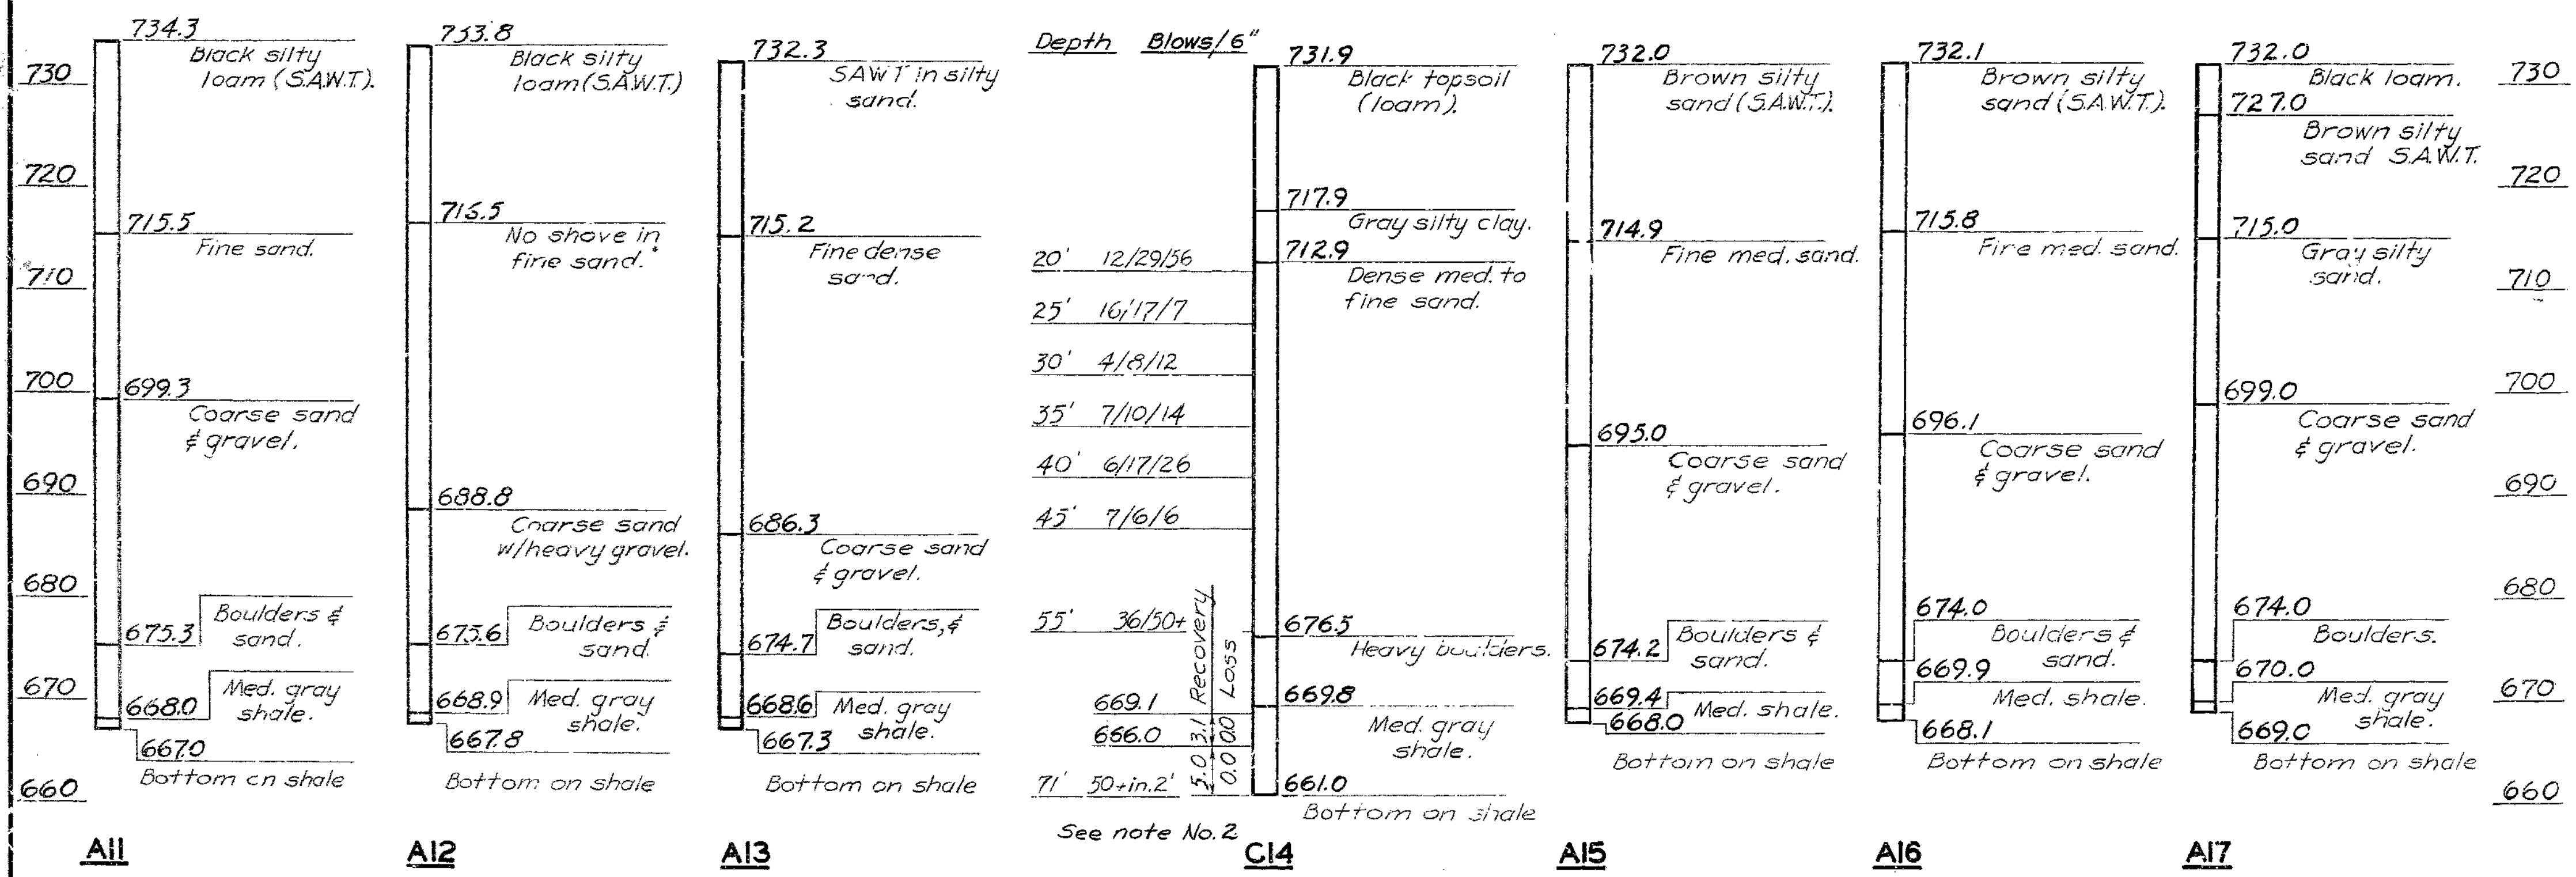 730
720
710
700
690
680
670
660
734.3
Black silty
loam (S.A.W.T.).
715.5
Fine sand.
699.3
Coarse sand
& gravel.
675.3
Boulders &
sand.
668.0
Med. gray
shale.
667.0
Bottom on shale
A11
733.8
Black silty
loam (S.A.W.T.)
716.5
No shove in
fine sand.*
688.8
Coarse sand
w/heavy gravel.
675.6
Boulders &
sand.
668.9
Med. gray
shale.
667.8
Bottom on shale
A12
732.3
SAWT in silty
sand.
715.2
Fine dense
sand.
686.3
Coarse sand
& gravel.
674.7
Boulders, &
sand.
668.6
Med. gray
shale.
667.3
Bottom on shale
A13
Depth Blows/6"
20' 12/29/56
25' 16/17/7
30' 4/8/12
35' 7/10/14
40' 6/17/26
45' 7/6/6
55' 36/50+
Recovery
Loss
669.1
3.1 0.0
666.0
5.0 0.0
71' 50+in.2'
See note No. 2
731.9
Black topsoil
(loam).
717.9
Gray silty clay.
712.9
Dense med. to
fine sand.
676.5
Heavy boulders.
669.8
Med. gray
shale.
661.0
Bottom on shale
C14
732.0
Brown silty
sand (S.A.W.T.).
714.9
Fine med. sand.
695.0
Coarse sand
& gravel.
674.2
Boulders &
sand.
669.4
Med. shale.
668.0
Bottom on shale
A15
732.1
Brown silty
sand (S.A.W.T.).
715.8
Fine med. sand.
696.1
Coarse sand
& gravel.
674.0
Boulders &
sand.
669.9
Med. shale.
668.1
Bottom on shale
A16
732.0
Black loam.
727.0
Brown silty
sand S.A.W.T.
715.0
Gray silty
sand.
699.0
Coarse sand
& gravel.
674.0
Boulders.
670.0
Med. gray
shale.
669.0
Bottom on shale
A17
730
720
710
700
690
680
670
660